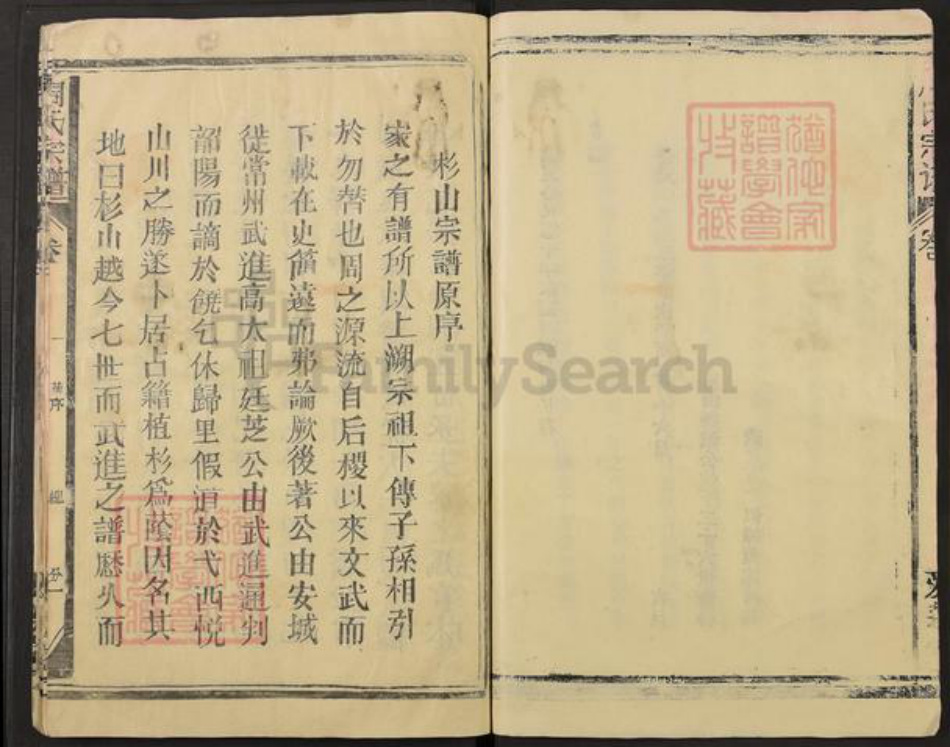 杉山宗譜原序
家之有譜所以上溯宗祖下傳子孫相引
於勿替也周之源流自后稷以來文武而
下載在史篇遠而弗論厥後著公由安城
徙常州武進高太祖廷芝公由武進通判
韶陽而謫於饒乞休歸里假道於弋西悅
山川之勝遂卜居占籍植杉為蔭因名其
地曰杉山越今七世而武進之譜歷久而
周氏宗譜
卷
序
猶他家
譜學會
收藏
FamilySearch